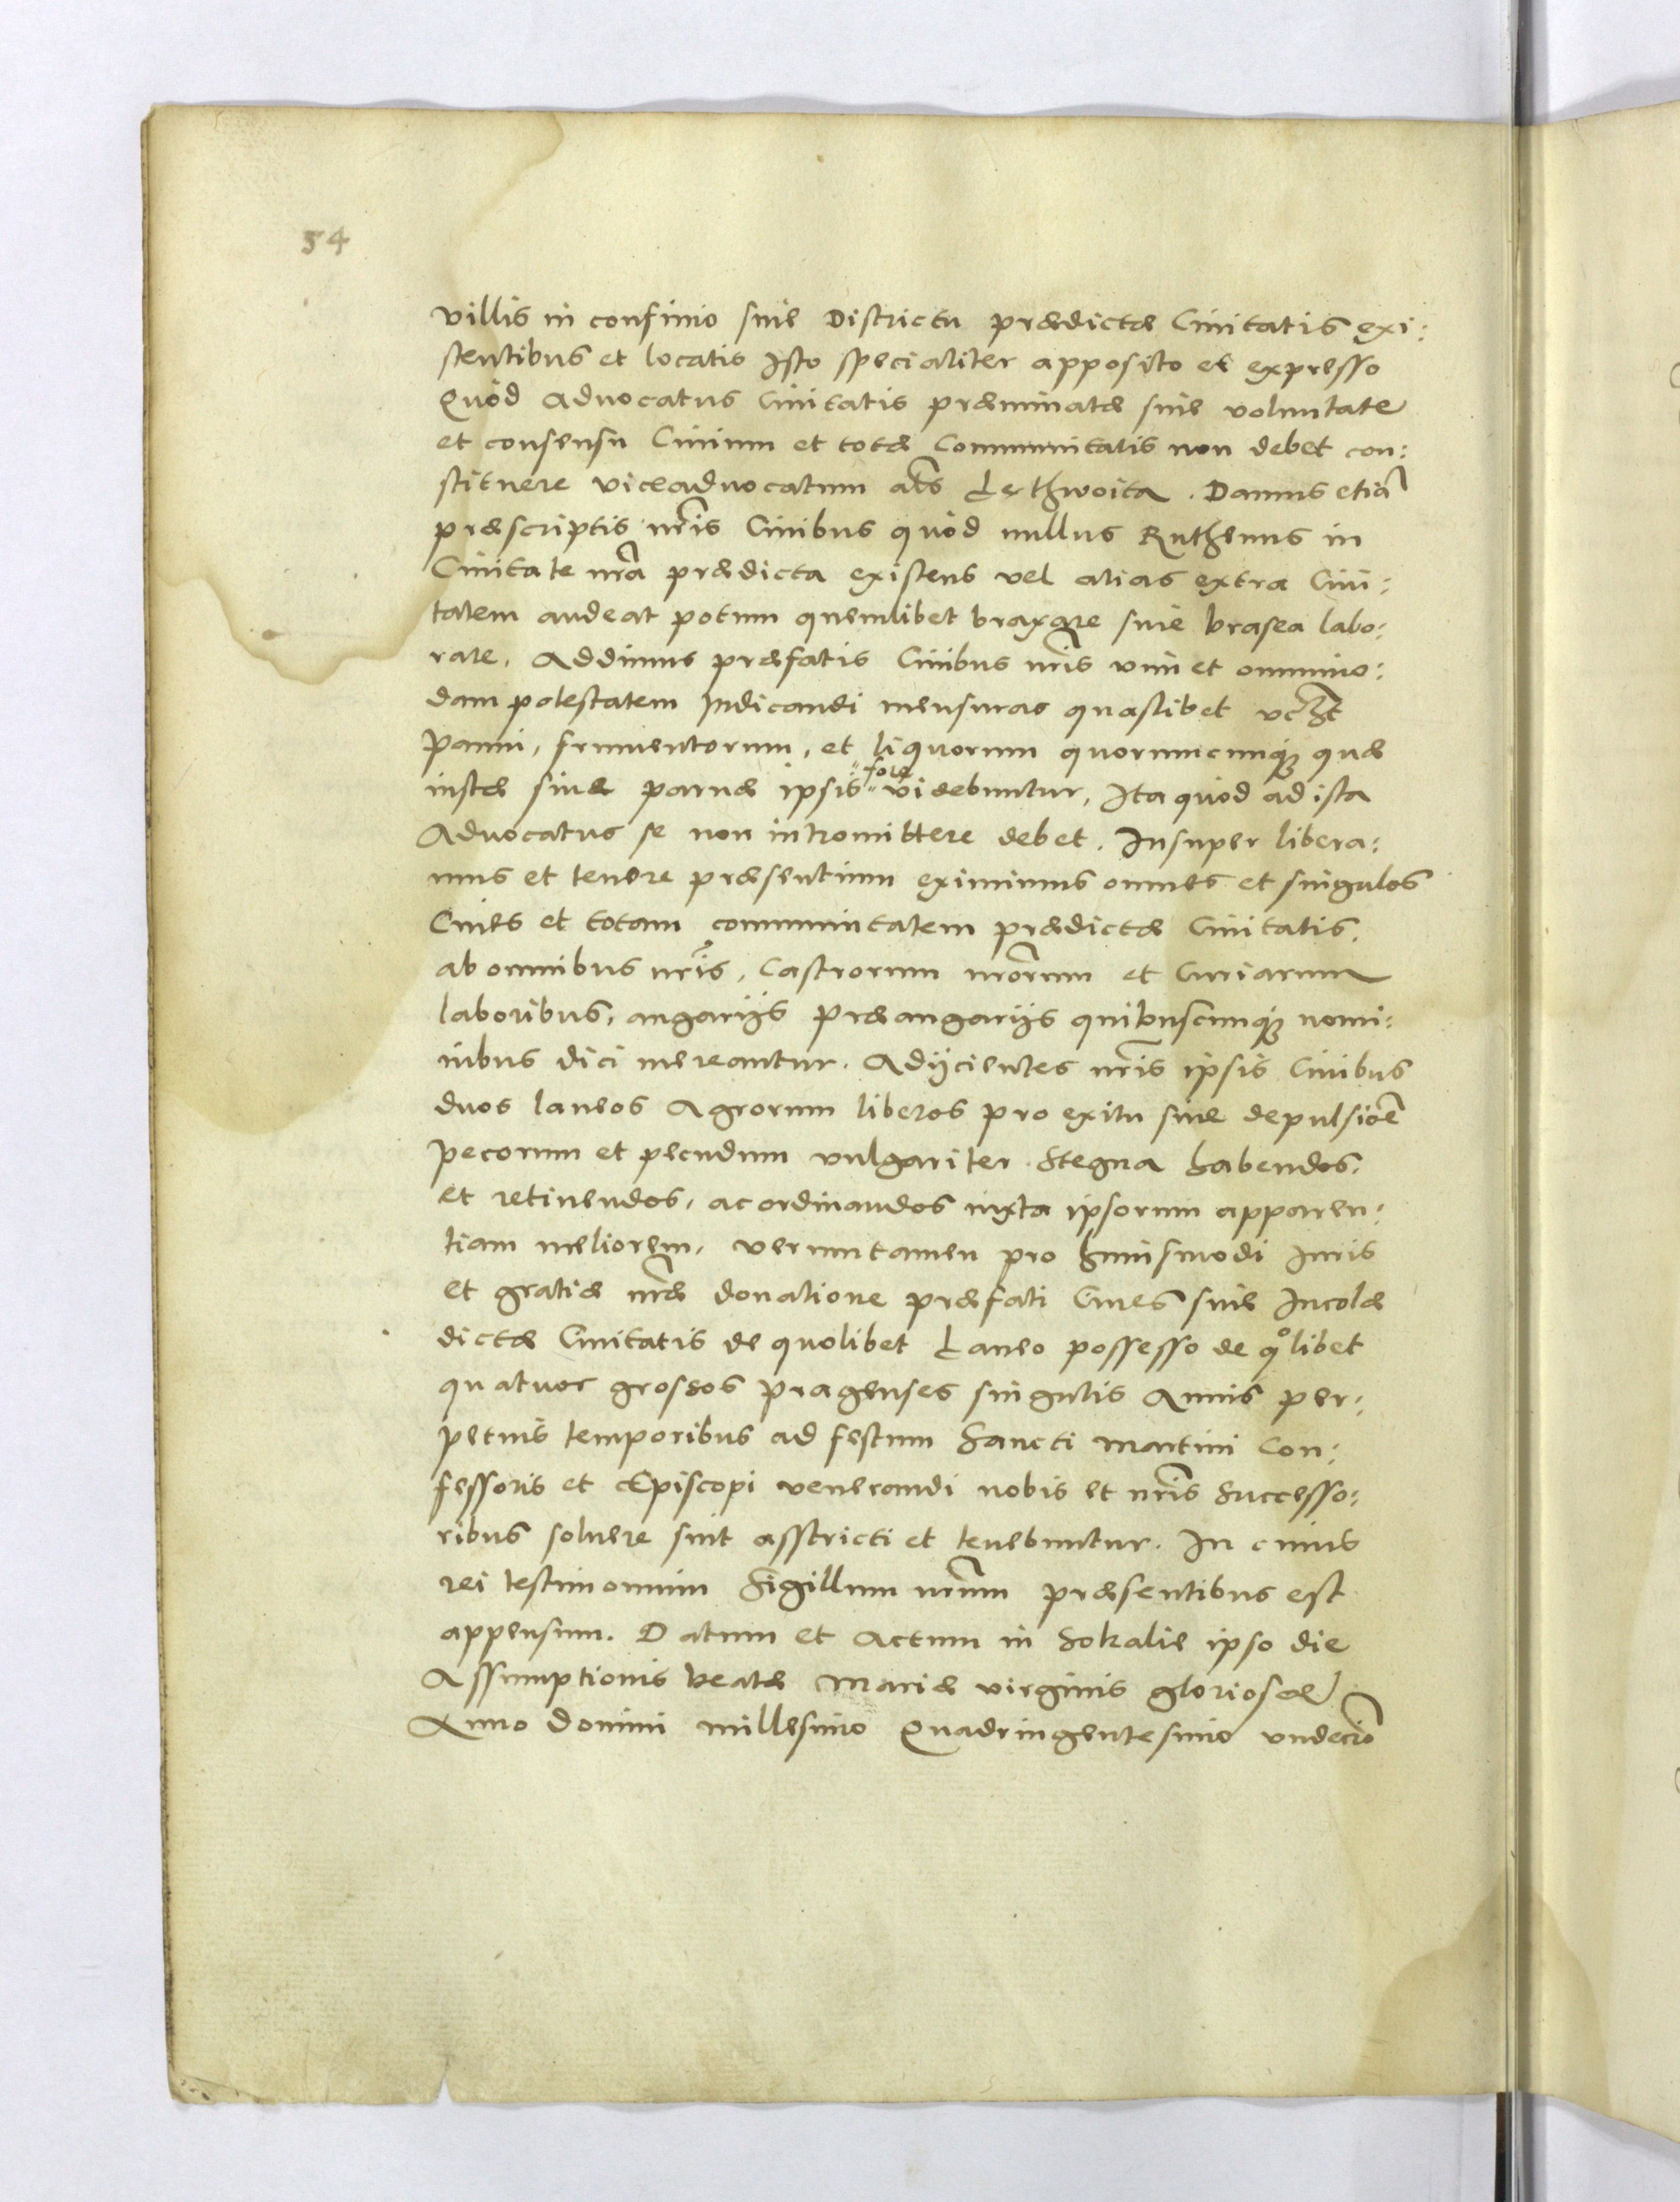 54
villis in confinio siue Districtu prædictæ Ciuitatis exi:
stentibus et locatis Isto specialiter apposito et expresso
Quòd Aduocatus Ciuitatis præminatæ siue voluntate
et consensu Ciuium et totæ Communitatis non debet con:
stituere viceaduocatum als Lethwoita. Damus etiã
præscriptis nr̃is Ciuibus quòd nullus Ruthenus in
Ciuitate nr̃a prædicta existens vel alias extra Ciui:
tatem audeat potum quemlibet braxare siue brasea labo:
rare. Addimus præfatis Ciuibus nr̃is vim et omnimo:
dam potestatem Iudicandi mensuras quaslibet vczt
panni, frumentorum, et liquorum quorumcunqʒ quæ
iustæ siue paruæ ipsis fore videbuntur, Ita quòd ad ista
Aduocatus se non intromittere debet. Insuper libera:
mus et tenore præsentium eximimus omnes et singulos
Ciues et totam communitatem prædictæ Ciuitatis,
ab omnibus nr̃is, Castrorum nr̃orum et Curiarum
laboribus, angarijs præangarijs quibuscunqʒ nomi:
nibus dici mereantur. Adijcientes nr̃is ipsis Ciuibus
duos laneos Agrorum liberos pro exitu siue depulsiõe
pecorum et pecudum vulgariter Stegna habendos,
et retinendos, ac ordinandos iuxta ipsorum apparen:
tiam meliorem, veruntamen pro huiusmodi Iuris
et gratiæ nr̃æ donatione præfati Ciues siue Incolæ
dictæ Ciuitatis de quolibet Laneo possesso de qºlibet
quatuor grossos pragenses singulis Annis per:
petuis temporibus ad festum Sancti Martini Con:
fessoris et Episcopi venerandi nobis et nr̃is Successo:
ribus soluere sint asstricti et tenebuntur. In cuius
rei testimonium Sigillum nr̃um præsentibus est
appensum. Datum et Actum in Sokalie ipso die
Assumptionis beatæ Mariæ virginis gloriosæ
Anno Domini millesimo Quadringentesimo vndecĩo